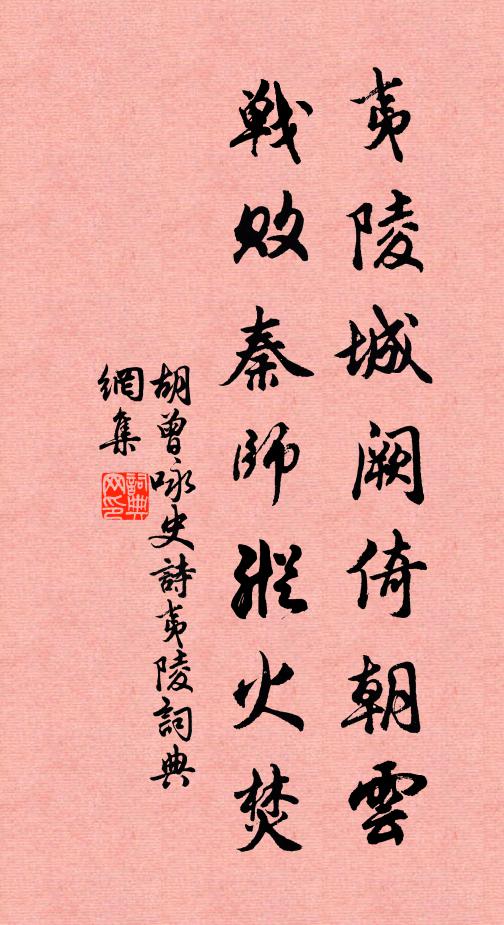 夷陵城阙倚朝雲
戦敗秦師縱火焚
胡曾咏史詩夷陵詞典
網集
詞典
网印